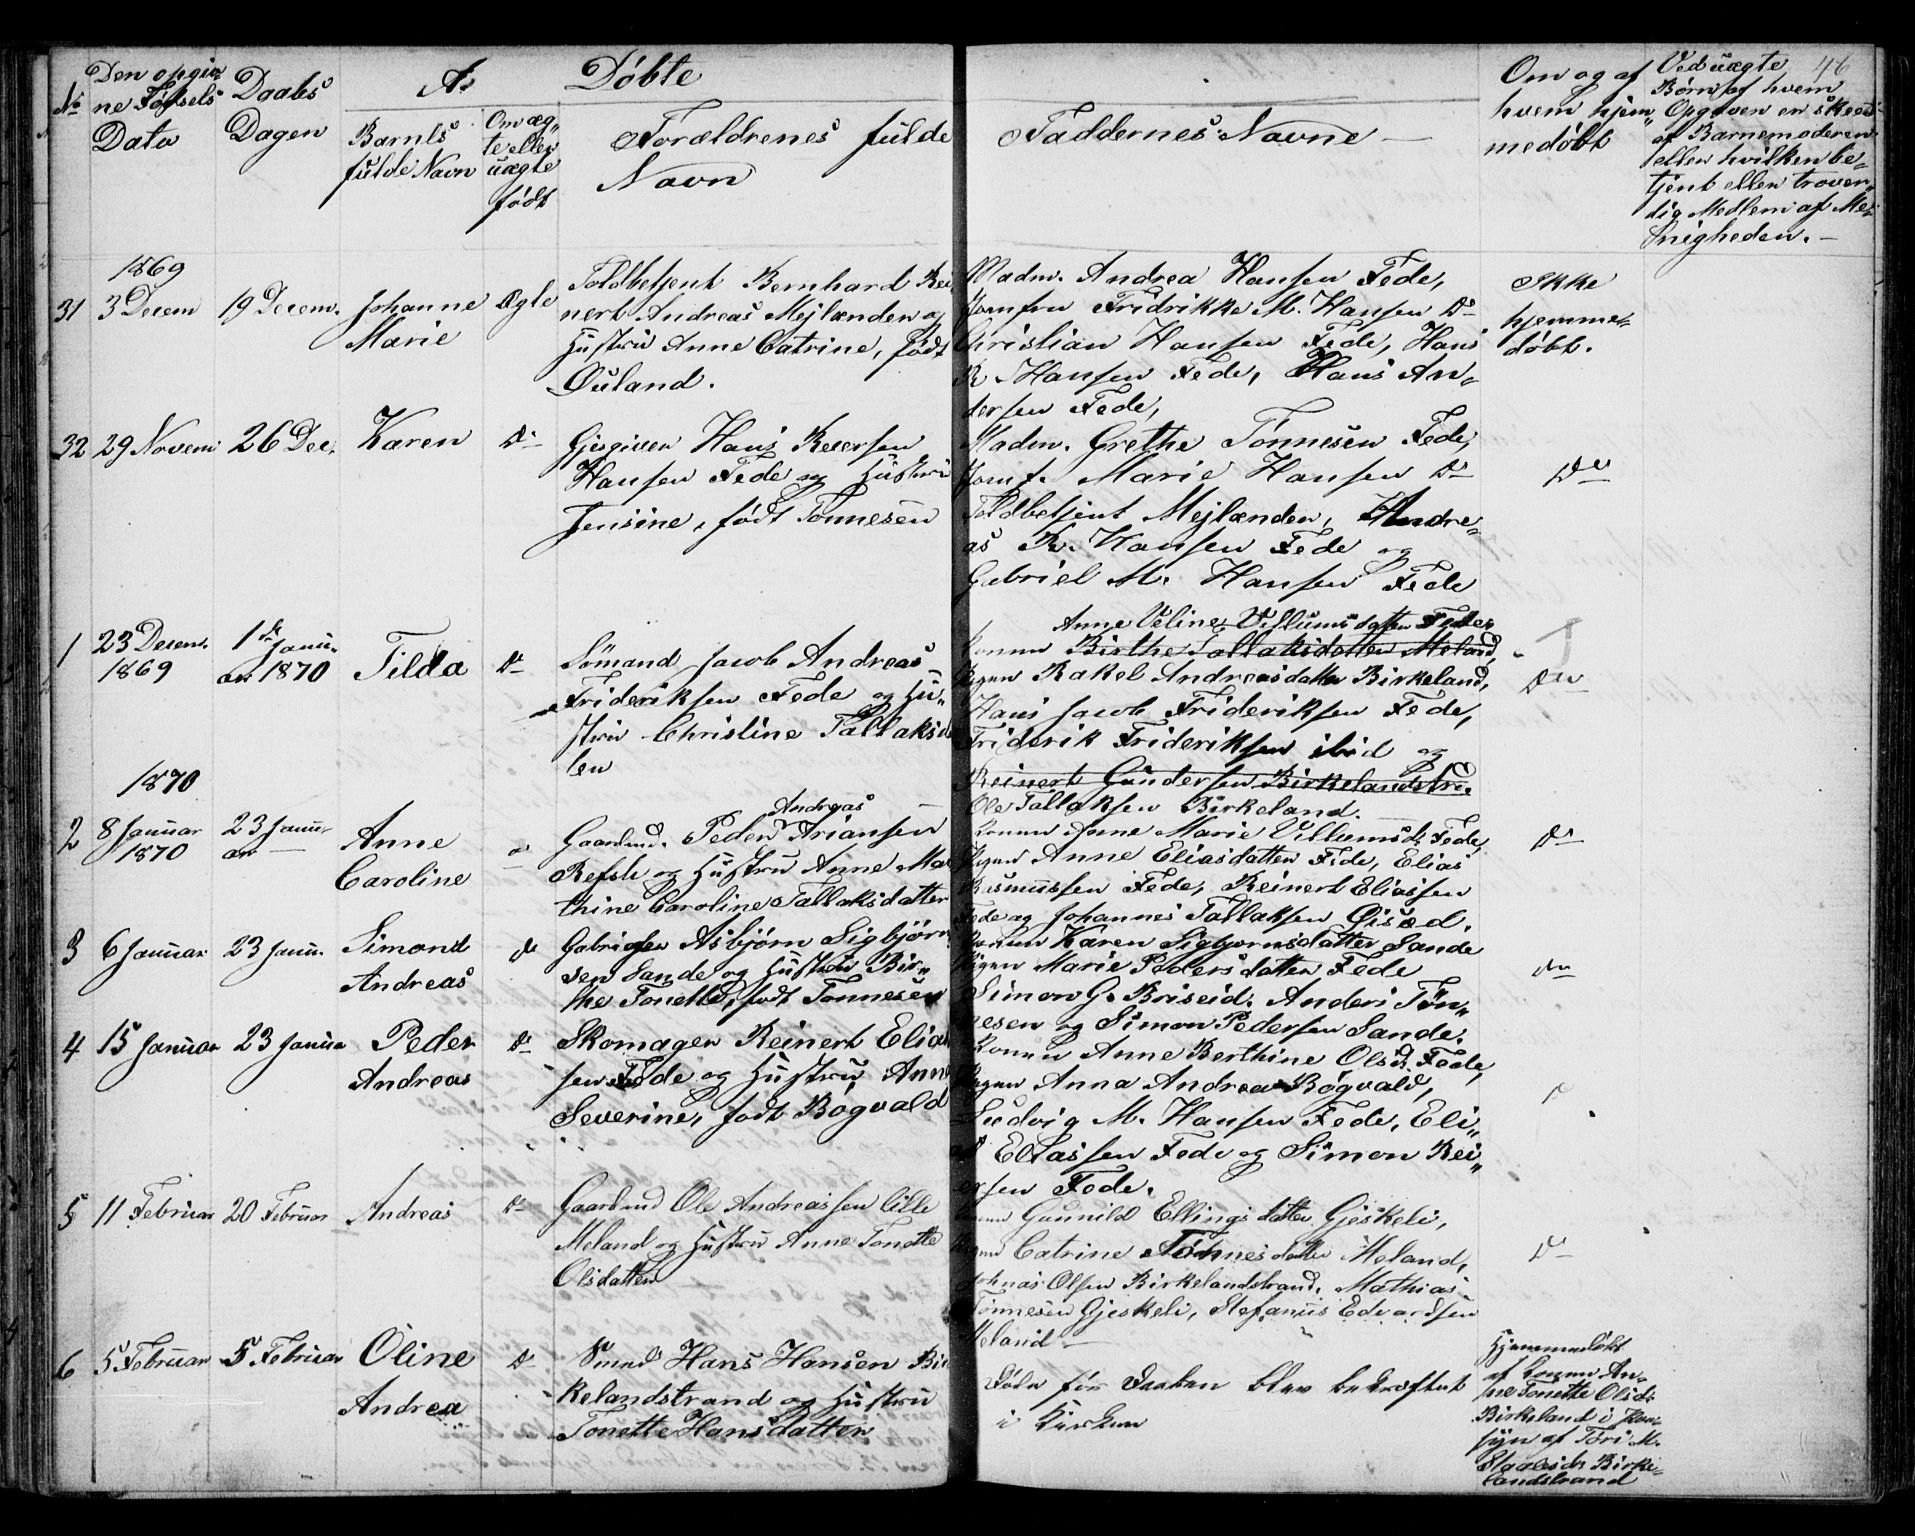 46
Aº Døbte
No
Den opgiv
ne Fødsels
Dato
Daabs
Dagen
Barnets
fulde Navn
Om æg„
te eller
uægte
født
Forældrenes fulde
Navn
Faddernes Navne
Om og af
hvem hjem„
medøbt
Ved uægte
Børn af hvem
Opgaven er skeed
af Barnemoderen
eller hvilken be„
tjent eller trover„
dig Medlem af Me„
nigheden.
1869
31 3 Decem 19 Decem. Johanne
Marie
Ægte
Toldbetjent Bernhard Rei
nert Andreas Mejlænder og
Hustru Anne Catrine, født
Øuland.
Madm. Andrea Hansen Fede,
Jomfru Fridrikke M. Hansen Do
Christian Hansen Fede, Hans
R. Hansen Fede, Hans An„
dersen Fede,
Ikke
hjemme„
døbt.
32 29 Novem 26 Dec. Karen Do
Gjæstgiver Hans Reiersen
Hansen Fede og Hustru
Jensine, født Tønnesen
Madm. Grethe Tønnesen Fede,
Jomf. Marie Hansen Do
Toldbetjent Mejlænder, Andre„
as R. Hansen Fede og
Gabriel M. Hansen Fede
Do
1 23 Decem.
1869
1de Janu„
ar 1870
Tilda Do
Sømand Jacob Andreas
Frideriksen Fede og Hu„
stru Christine Tallaksd
ten
Anne Veline Villumsdatter Fede,
Konen Birthe Tallaksdatter Meland,
Pigen Rakel Andreasdatter Birkeland,
Hans Jacob Frideriksen Fede,
Friderik Frideriksen ibid og
Reinert Gundersen Birkelandstr.
Ole Tallaksen Birkeland.
Do
1870
2 8 Januar
1870
23 Janu„
ar
Anne
Caroline
Do
Andreas
Gaardmd. Peder Ariansen
Refste og Hustru Anne Ma
thine Caroline Tallaksdatter
Konen Anne Marie Villumsd. Fede,
Pigen Anne Eliasdatter Fede, Elias
Rasmussen Fede, Reinert Eliassen
Fede og Johannes Tallaksen Øisæd.
Do
3 6 Januar 23 Janu. Simond
Andreas
do
Gabriel Asbjørn Sigbjørn
sen Sande og Hustru Bir„
the Tonette, født Tønnesen
Konen Karen Sigbjørnsdatter Sande
Pigen Marie Pedersdatter Fede
Simon G. Briseid, Anders Tøn„
nesen og Simon Pedersen Sande.
do
4 15 Januar 23 Januar Peder
Andreas
Do
Skomager Reinert Elias
sen Fede og Hustru Anne
Severine, født Bøgvald
Konen Anne Berthine Olsd. Fede,
Pigen Anna Andrea Bøgvald,
Ludvig M. Hansen Fede, Eli„
as Eliassen Fede og Simon Rei„
ersen Fede.
5 11 Februar 20 Februar Andreas Do
Gaardmd Ole Andreassen lille
Meland og Hustru Anne Tonette
Olsdatter
Konen Gunnild Ellingsdatter Gjeskeli,
Pigen Catrine Tønnesdatter Meland,
Johnas Olsen Birkelandstrand, Mathias
Tønnesen Gjeskeli, Stefanus Edvardsen
Meland
Do
6 5 Februar 5 Februar Oline
Andrea
Do
Smed Hans Hansen Bir
kelandstrand og Hustru
Tonette Hansdatter
Døde før Daaben blev bekræftet
i Kirken
Hjemmedøbt
af konen An„
ne Tonette Olsd.
Birkeland i Paa„
syn af Tori M.
Birke„
landstrand